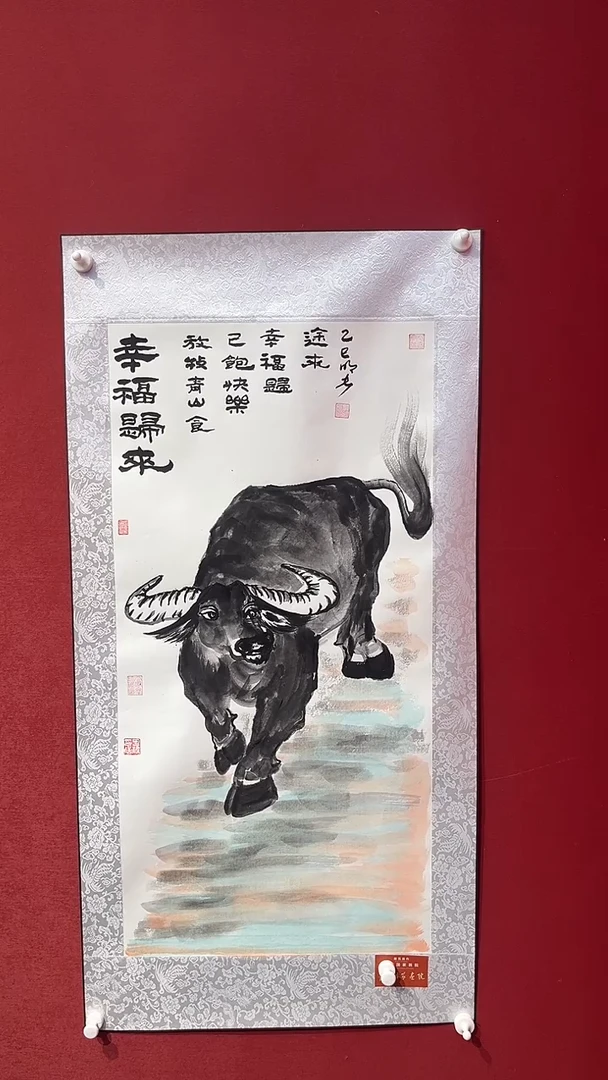 幸福歸來
放牧青山食
已飽快樂
幸福歸
途來
乙巳